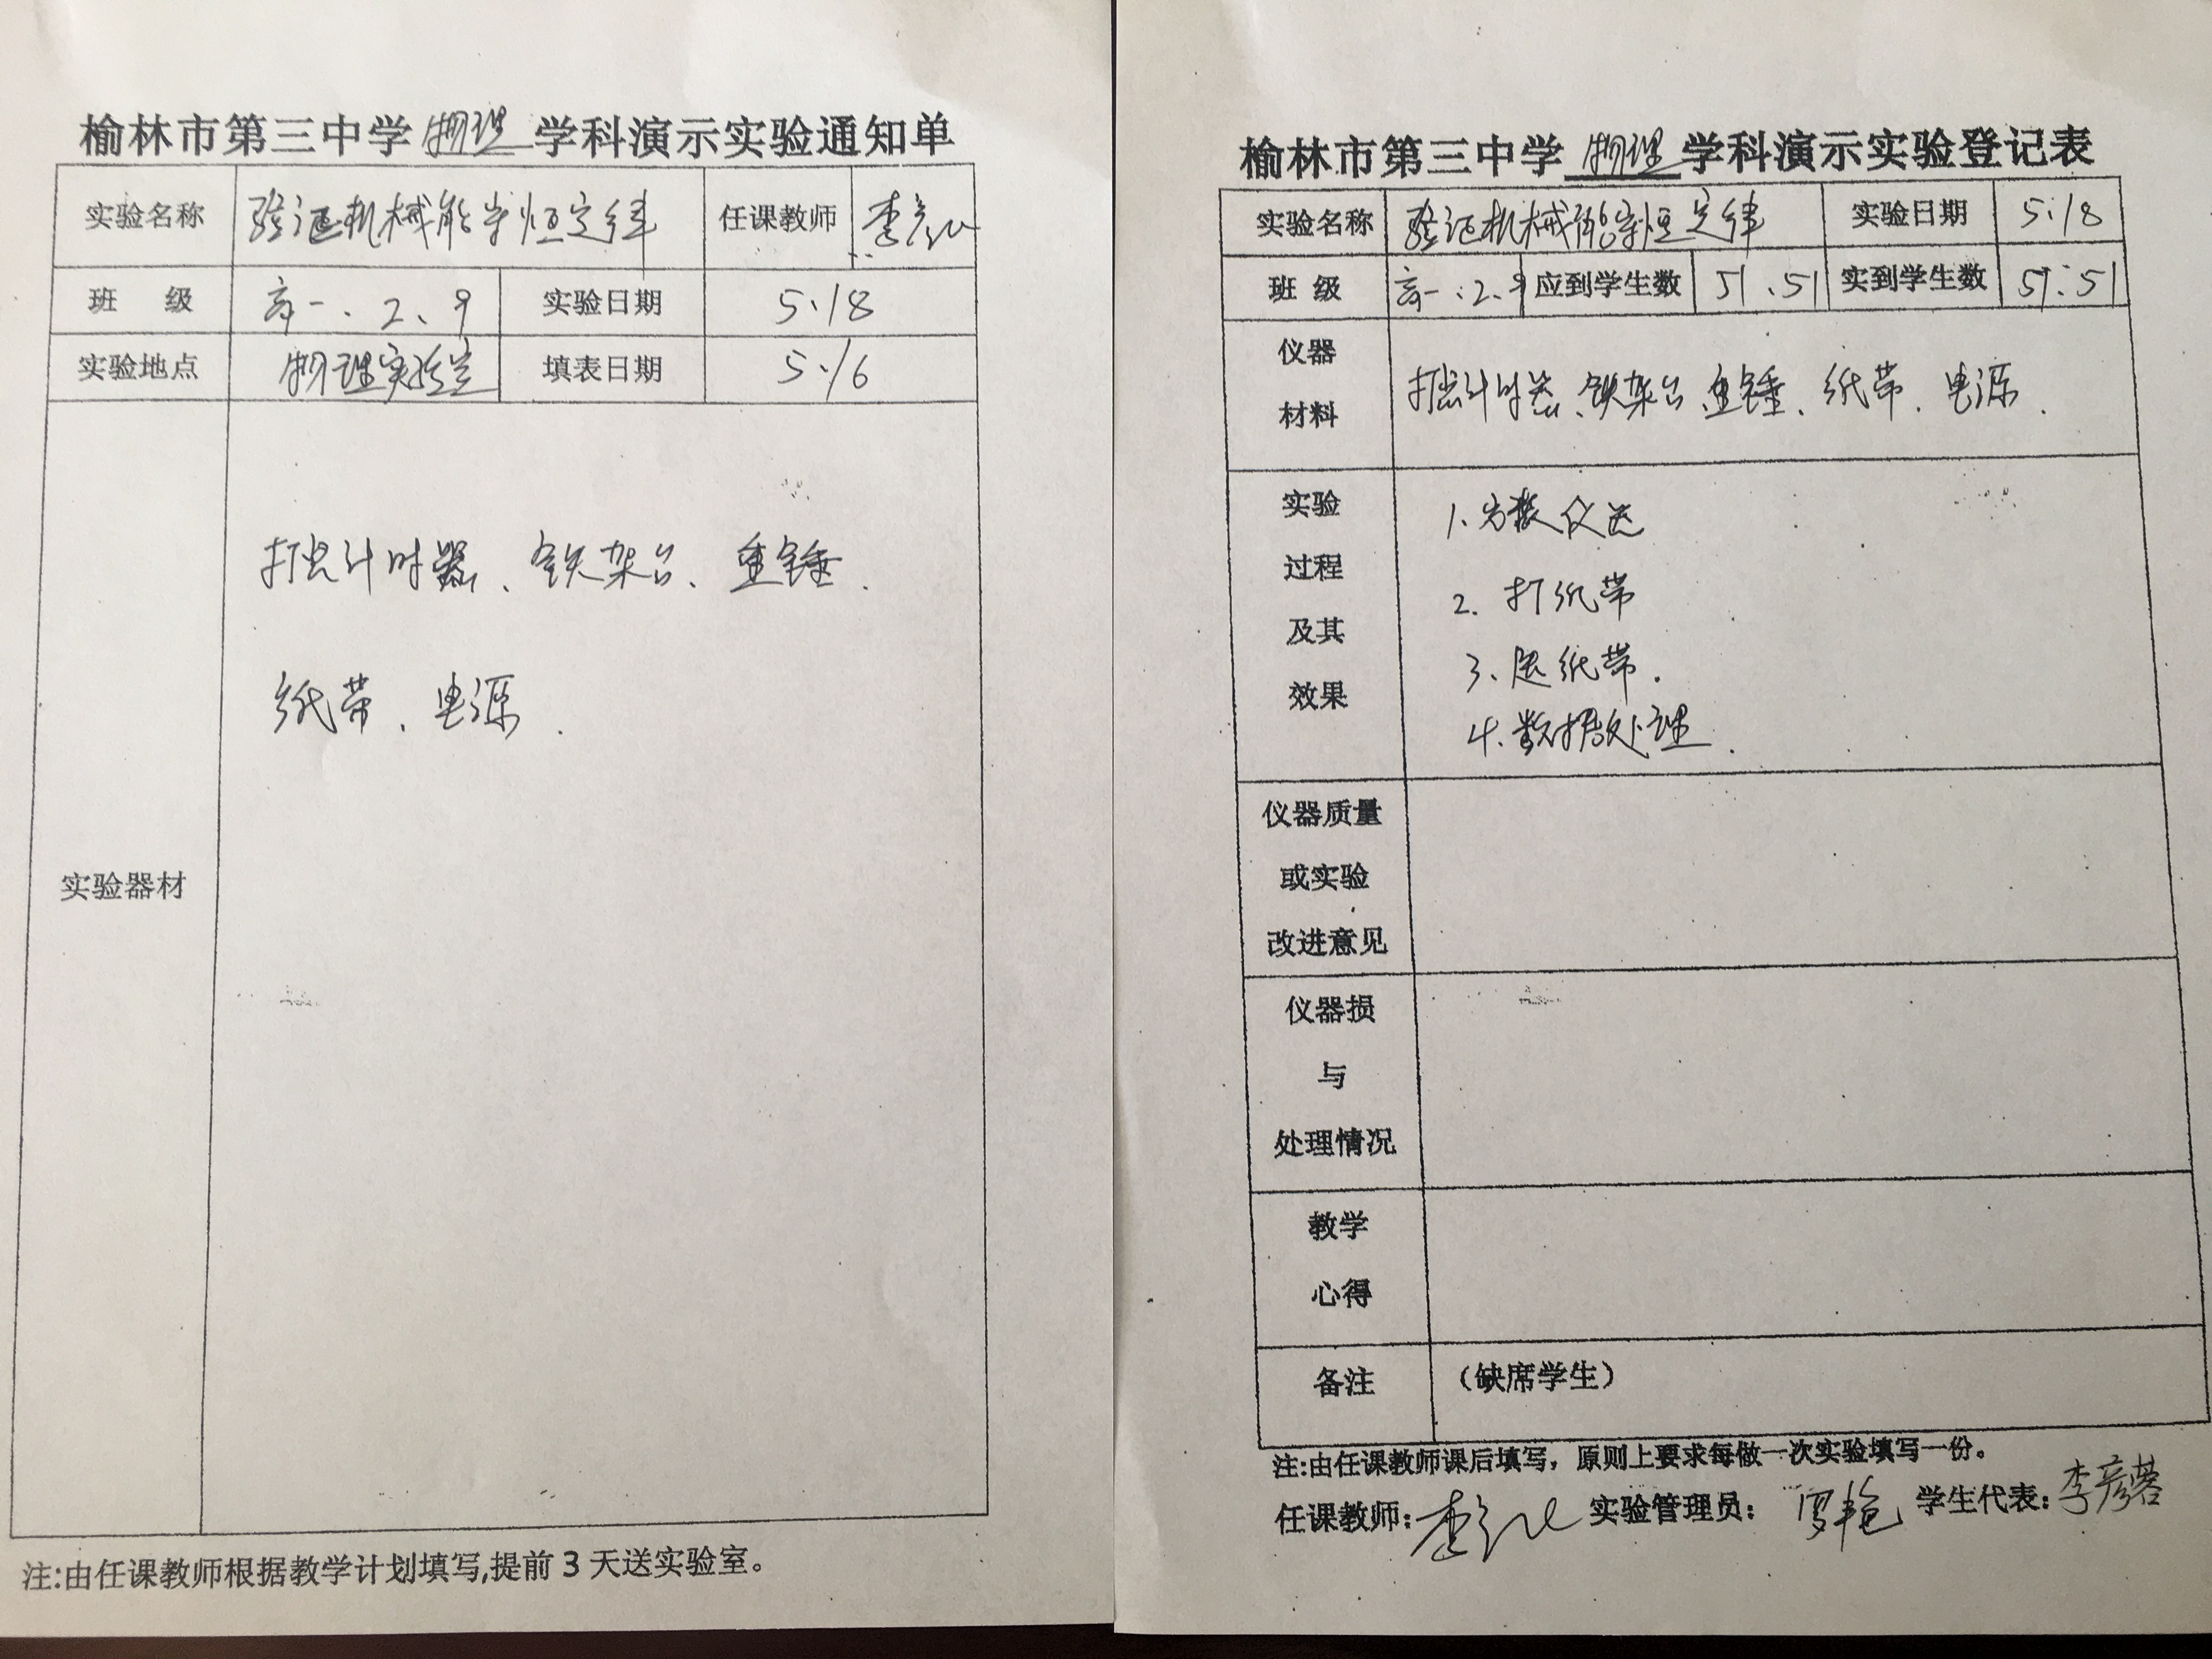 榆林市第三中学物理学科演示实验通知单
实验名称 验证机械能守恒定律 任课教师 李
班 级 高一、2、9 实验日期 5.18
实验地点 物理实验室 填表日期 5.16
打点计时器、铁架台、重锤、
纸带、电源.
实验器材
注:由任课教师根据教学计划填写,提前3天送实验室。
榆林市第三中学物理学科演示实验登记表
实验名称 验证机械能守恒定律 实验日期 5.18
班 级 高一.2、9 应到学生数 51、51 实到学生数 51.51
仪器
材料
打点计时器、铁架台、重锤、纸带、电源.
实验
过程
及其
效果
1.安装仪器
2.打纸带
3、选纸带.
4.数据处理.
仪器质量
或实验
改进意见
仪器损
与
处理情况
教学
心得
备注 （缺席学生）
注:由任课教师课后填写，原则上要求每做一次实验填写一份。
任课教师:李 实验管理员:罗艳 学生代表:李彦蓉